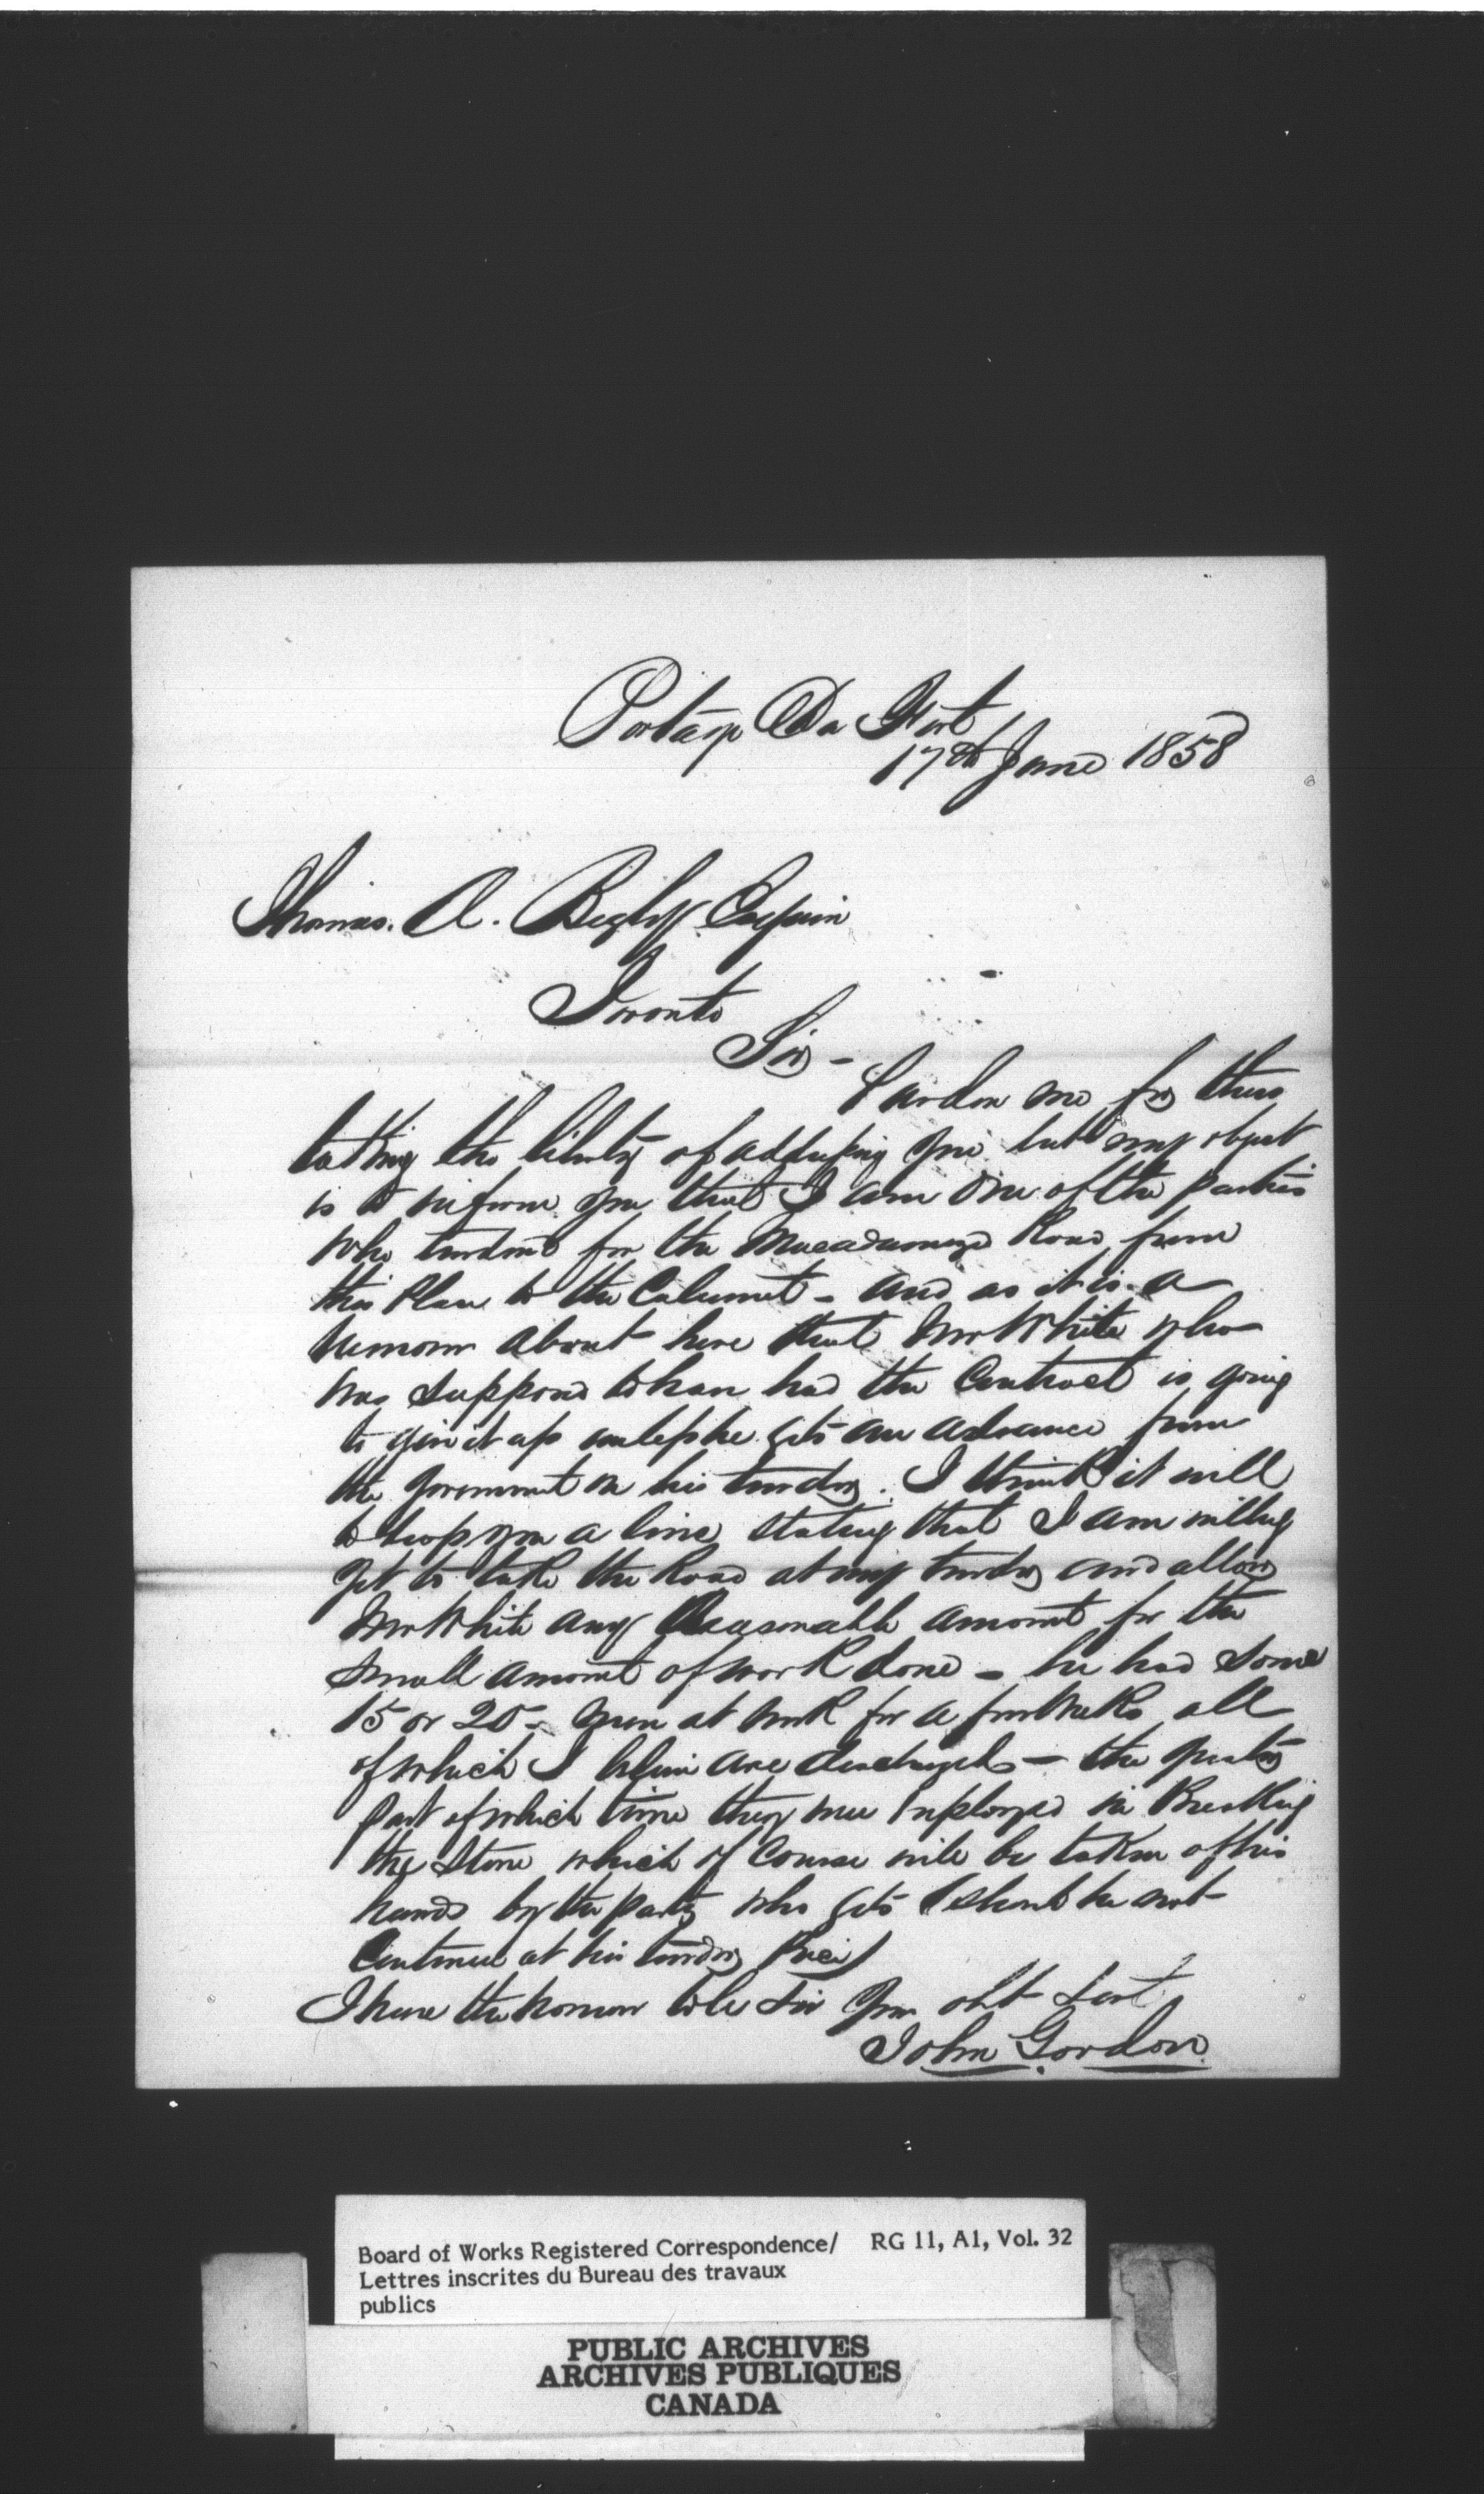 Portage Du Fort
17th June 1858
Thomas. A. Begly Esquire
Toronto
Sir -
Pardon me for thus
taking the liberty of addressing you but my object
is to inform you that I am one of the parties
who tendered for the Macadamized Road from
this Place to the Calumet - and as it is a
rumour about here that Mr White who
was supposed to have had the Contract is going
to give it up unless he gets an advance from
the Government on his tender. I think it well
to drop you a line stating that I am willing
yet to take the Road at my tender and allow
Mr White any Reasonable amount for the
small amount of work done - he had some
15 or 20 - men at work for a few weeks all
of which I believe are discharged - the greater
part of which time they were employed in Breaking
the Stone which of course will be taken of his
hands by the party who gets (should he not
Continue at his tender Price)
I have the honour to be Sir your obt Servt
John Gordon
Board of Works Registered Correspondence/ RG 11, A1, Vol. 32
Lettres inscrites du Bureau des travaux
publics
PUBLIC ARCHIVES
ARCHIVES PUBLIQUES
CANADA